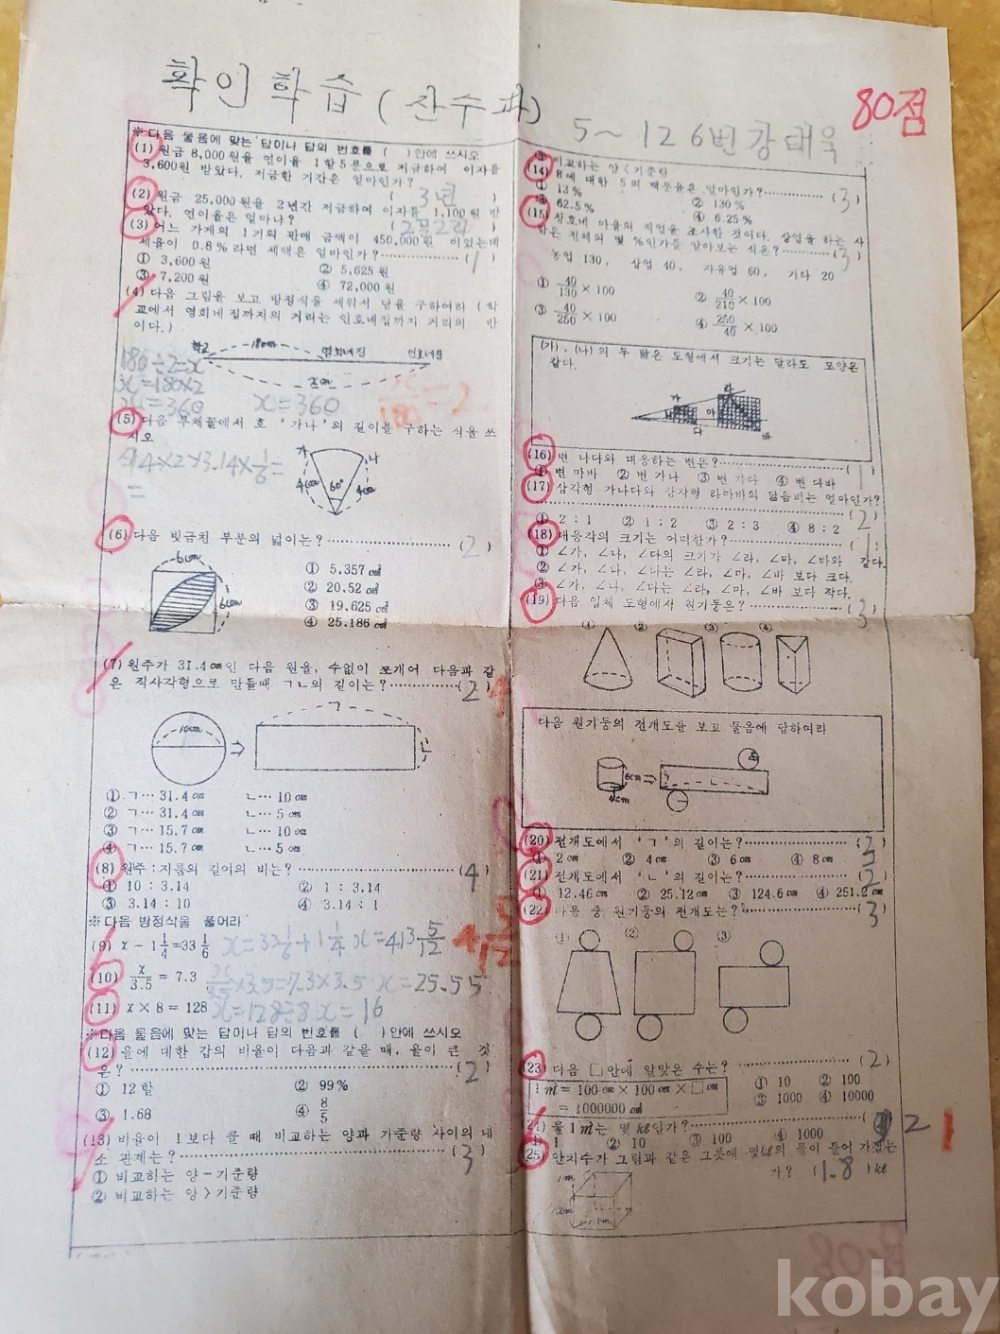 확인학습 (산수과)
5~12 6번 강태욱
80점
※다음 물음에 맞는 답이나 답의 번호를 ( )안에 쓰시오
(1) 원금 8,000원을 연이율 1할5푼으로 저금하여 이자를
3,600원 받았다. 저금한 기간은 얼마인가?
( 3년 )
(2) 원금 25,000원을 2년간 저금하여 이자를 1,100원 받
았다. 연이율은 얼마나?
(2푼2리)
(3) 어느 가게의 1기의 판매 금액이 450,000원 이었는데
세율이 0.8%라면 세액은 얼마인가? (1)
① 3,600원 ② 5,625원
③ 7,200원 ④ 72,000원
(4) 다음 그림을 보고 방정식을 세워서 답을 구하여라 (학
교에서 영희네 집까지의 거리는 인호네집까지 거리의 반
이다.)
학교 180m 영희네집 인호네집
180÷2=x
x=180×2
x=360 x=360
(5) 다음 부채꼴에서 호 '가나'의 길이를 구하는 식을 쓰
시오
4×2×3.14×1/6=
=
가 나
4cm 60° 4cm
(6) 다음 빗금친 부분의 넓이는? (2)
6cm
6cm
① 5.357㎠
② 20.52㎠
③ 19.625㎠
④ 25.186㎠
(7) 원주가 31.4㎝인 다음 원을, 수없이 쪼개어 다음과 같
은 직사각형으로 만들때 ㄱㄴ의 길이는? (2) 4
10cm ㄱ ㄴ
① ㄱ… 31.4㎝ ㄴ… 10㎝
② ㄱ… 31.4㎝ ㄴ… 5㎝
③ ㄱ… 15.7㎝ ㄴ… 10㎝
④ ㄱ… 15.7㎝ ㄴ… 5㎝
(8) 원주:지름의 길이의 비는? (4)
① 10 : 3.14 ② 1 : 3.14
③ 3.14 : 10 ④ 3.14 : 1
※다음 방정식을 풀어라
(9) x - 1 1/4 = 33 1/6 x=33 1/6 + 1 1/4 x=413 5/12
(10) x/3.5 = 7.3 ×3.5=7.3×3.5 x=25.55
(11) x × 8 = 128 x=128÷8 x=16
※다음 물음에 맞는 답이나 답의 번호를 ( )안에 쓰시오
(12) 을에 대한 갑의 비율이 다음과 같을 때, 을이 큰 것
은? (2)
① 12할 ② 99%
③ 1.68 ④ 8/5
(13) 비율이 1보다 클 때 비교하는 양과 기준량 사이의 대
소 관계는? (3)
① 비교하는 양 - 기준량
② 비교하는 양 > 기준량
③ 비교하는 양 < 기준량
(14) 8에 대한 5의 백분율은 얼마인가? (3)
① 13% ② 130%
③ 62.5% ④ 6.25%
(15) 창호네 마을의 직업을 조사한 것이다. 상업을 하는 사
람은 전체의 몇 %인가를 알아보는 식은? (3)
농업 130, 상업 40, 자유업 60, 기타 20
① 40/130 × 100 ② 40/210 × 100
③ 40/250 × 100 ④ 250/40 × 100
(가), (나)의 두 닮은 도형에서 크기는 달라도 모양은
같다.
(16) 변 나다와 대응하는 변은? (1)
① 변 마바 ② 변 가나 ③ 변 가다 ④ 변 다바
(17) 삼각형 가나다와 삼각형 라마바의 닮음비는 얼마인가?
(2)
① 2 : 1 ② 1 : 2 ③ 2 : 3 ④ 8 : 2
(18) 대응각의 크기는 어떠한가? (1)
① ∠가, ∠나, ∠다의 크기가 ∠라, ∠마, ∠바와 같다.
② ∠가, ∠나, ∠다는 ∠라, ∠마, ∠바 보다 크다.
③ ∠가, ∠나, ∠다는 ∠라, ∠마, ∠바 보다 작다.
(19) 다음 입체 도형에서 원기둥은? (3)
① ② ③ ④
다음 원기둥의 전개도를 보고 물음에 답하여라
6cm
4cm
(20) 전개도에서 'ㄱ'의 길이는? (3)
① 2㎝ ② 4㎝ ③ 6㎝ ④ 8㎝
(21) 전개도에서 'ㄴ'의 길이는? (2)
① 12.46㎝ ② 25.12㎝ ③ 124.6㎝ ④ 251.2㎝
(22) 다음 중 원기둥의 전개도는? (3)
① ② ③
(23) 다음 □안에 알맞은 수는? (2)
1㎥ = 100㎝ × 100㎝ × □㎝
= 1000000㎤
① 10 ② 100
③ 1000 ④ 10000
(24) 물 1㎥는 몇 ㎘인가? 2 1
① 1 ② 10 ③ 100 ④ 1000
(25) 안치수가 그림과 같은 그릇에 몇㎘의 물이 들어 가겠는
가? (1.8)㎘
1m
kobay